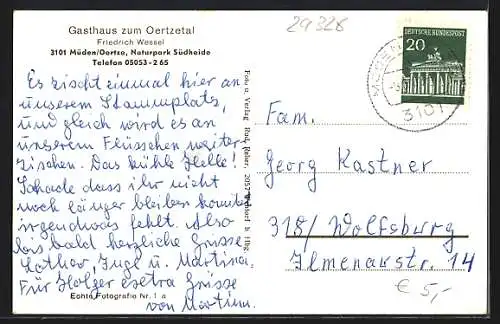 Gasthaus zum Oertzetal
Friedrich Wessel
3101 Müden/Oertze, Naturpark Südheide
Telefon 05053-265
Es zischt einmal hier an
unserem Stammplatz,
und gleich wird es an
unserem Flüsschen weiter-
zischen. Das kühle Helle!
Schade dass ihr nicht
noch länger bleiben konntet
irgendwas fehlt. Also
bis bald herzliche Grüsse
Lothar, Ingl u. Martina.
Für Holger extra Grüsse
von Martina.
Echte Fotografie Nr. 1 a
Foto u. Verlag Rud. Reher, 2057 b. Hbg.
29328
20
DEUTSCHE BUNDESPOST
3101
Fam.
Georg Kastner
318/ Wolfsburg
Ilmenaustr. 14
€ 5,-